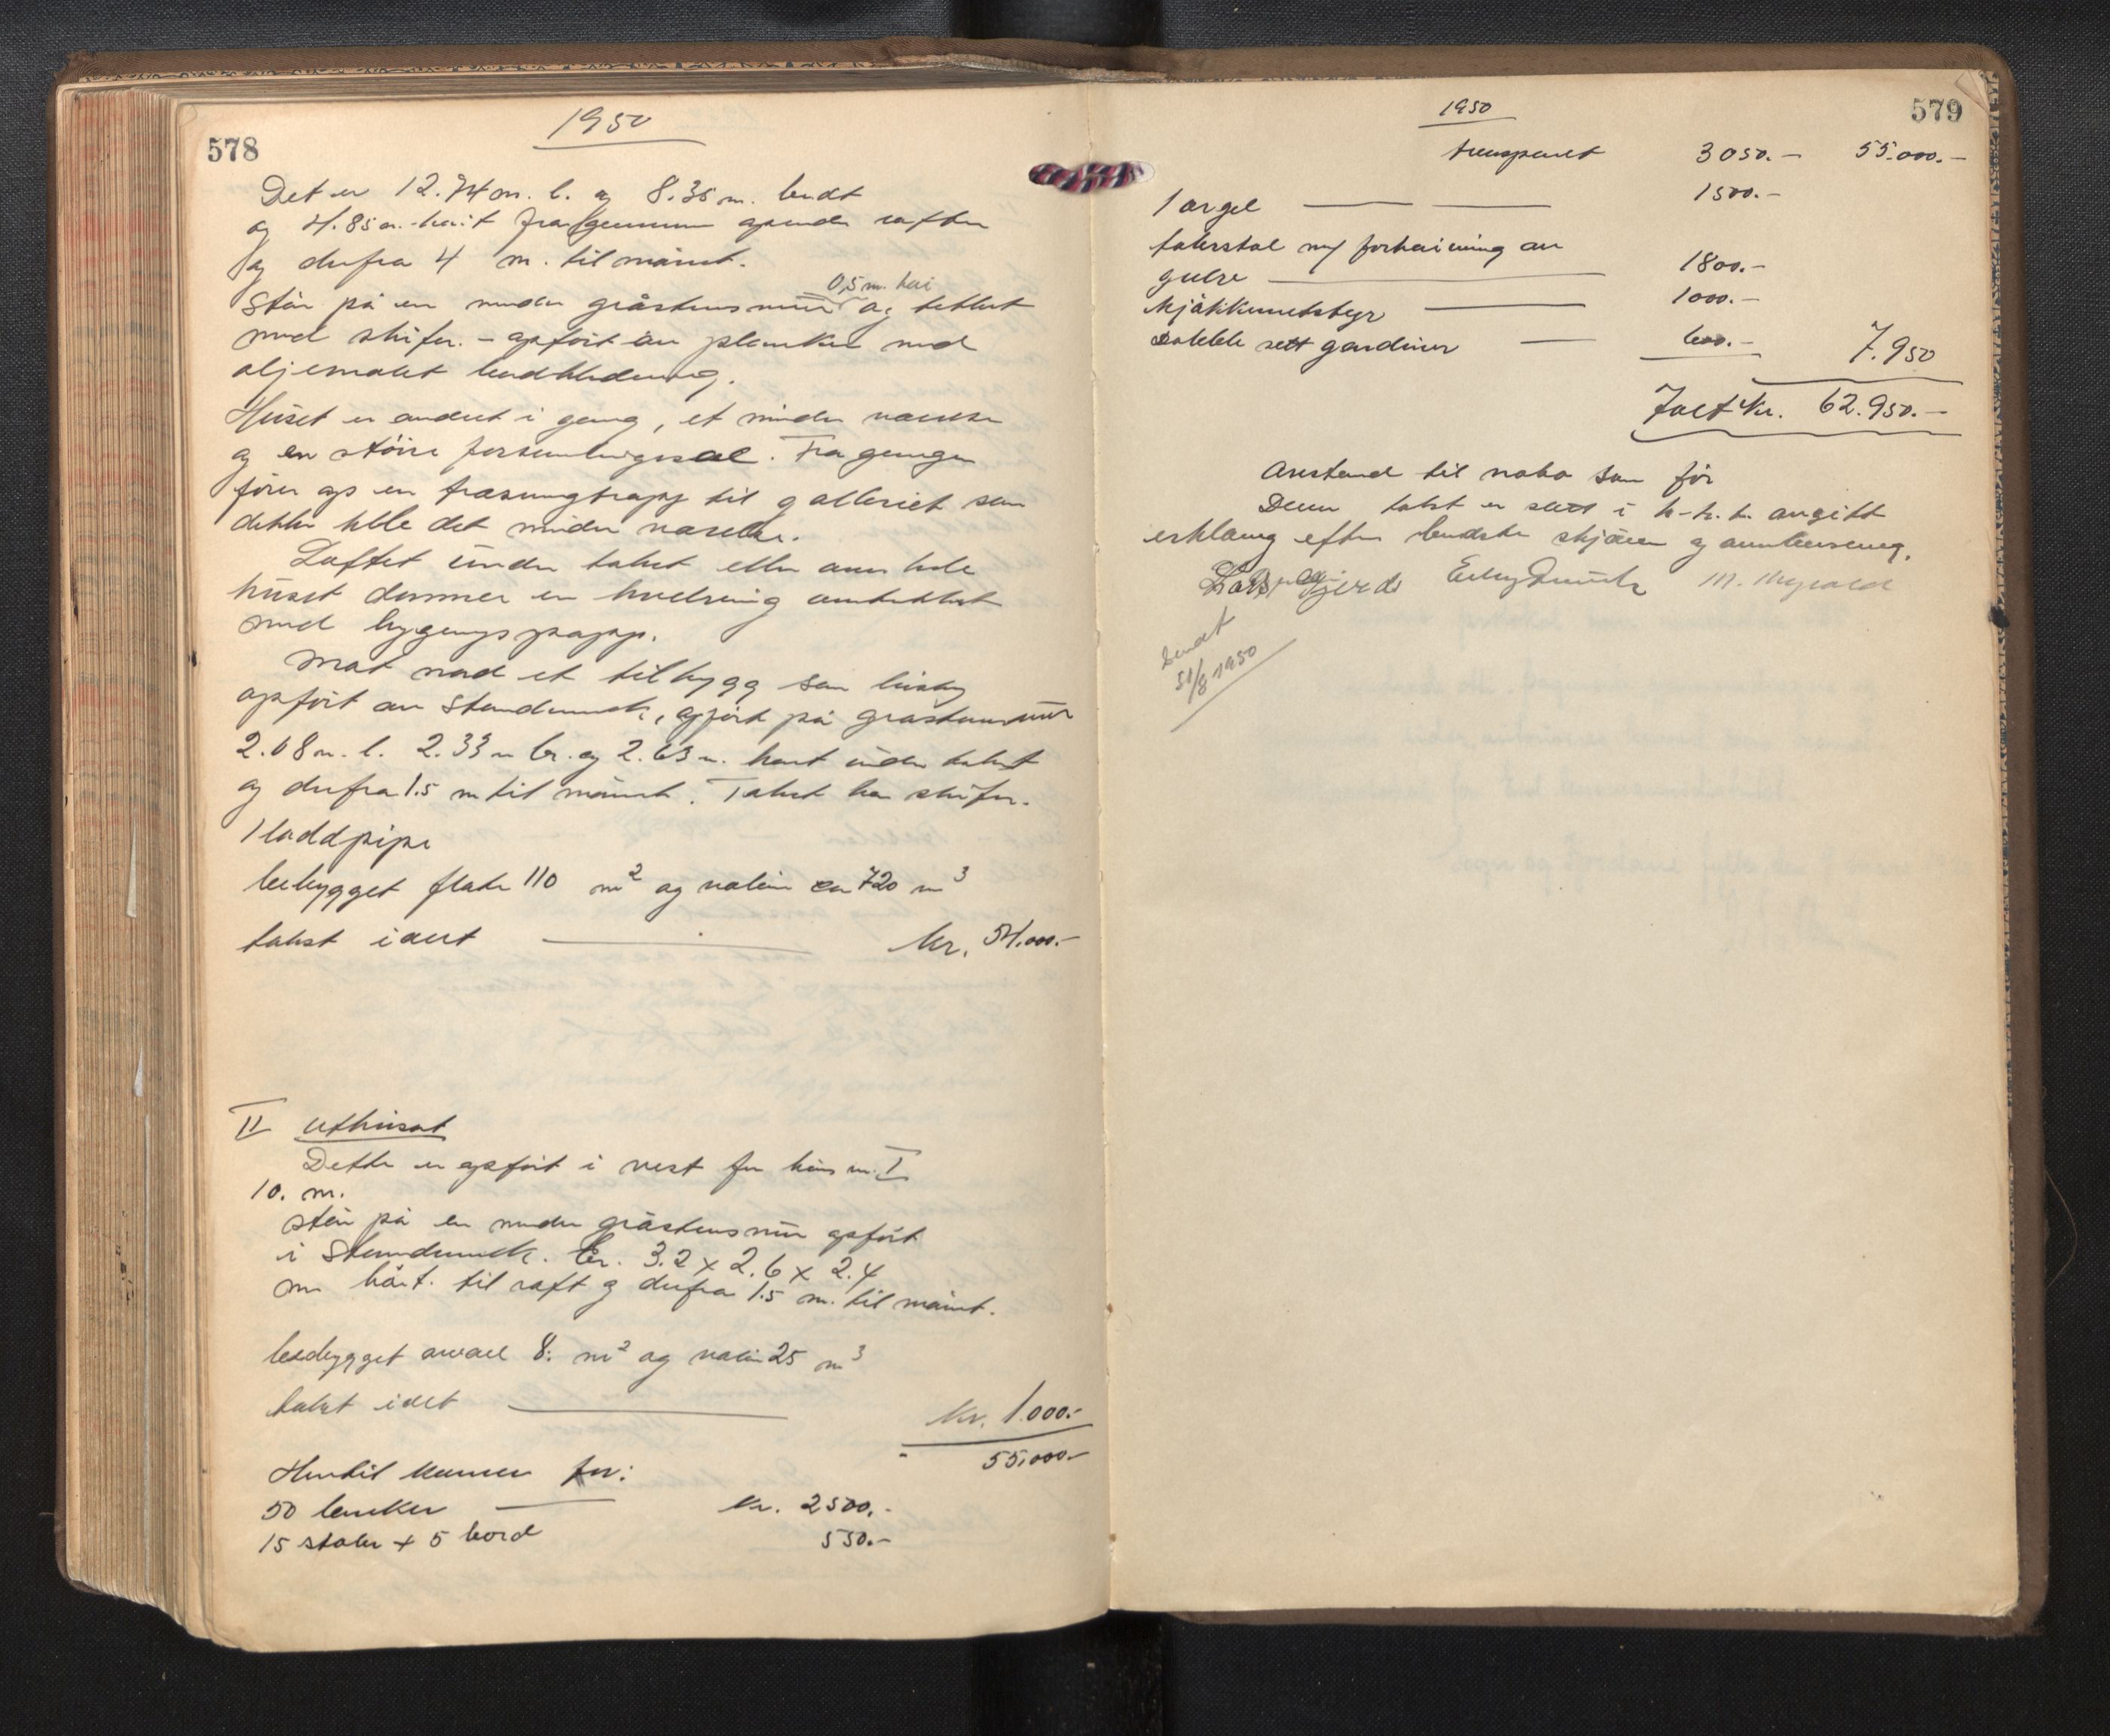 578
1950
Det er 12.74 m. l. og 8.35 m. bredt
og 4.85 m. høit fra grunnmur opunder raften
og derfra 4 m. til mønet.
0,5 m. høi
Står på en muret gråstensmur og tekket
med skifer. - opført av planker med
oljemalet bordkledning.
Huset er innredet i gang, et mindre værelse
og en større forsamlingssal. Fra gangen
fører op en træsvingtrapp til galleriet som
dekker hele det mindre værelse.
Loftet under taket eller over hele
huset danner en hvelving
med bygningspapp.
Mot nord et tilbygg som
opført av Stenderverk, opført på gråstensmur
2.08 m. l. 2.33 m br. og 2.63 m. høit under taket
og derfra 1.5 m til mønet. Taket har skifer.
1 loddpipe
bebygget flate 110 m² og volum ca 720 m³
takst i alt kr. 54.000.-
II Uthuset
Dette er opført i vest for hus nr. I
10. m.
står på en muret gråstensmur opført
i Stenderverk. Er. 3.2 x 2.6 x 2.4
m høit. til raft og derfra 1.5 m. til mønet.
bebygget areal 8. m² og volum 25 m³
takst i alt kr. 1.000.-
55.000.-
Hertil kommer for:
50 benker kr. 2500.-
15 stoler + 5 bord 550.-
579
1950
transport 3050.- 55.000.-
1 orgel 1500.-
talerstol m/ forhøining av
gulve 1800.-
kjøkkenutstyr 1000.-
Dobble sett gardiner 600.- 7.950
Ialt kr. 62.950.-
Avstand til nabo som før
Denne takst er satt i h.h.t. avgitt
erklæring efter bedste skjønn og overbevisning.
Lars Gjerde M. Myrvold
Sendt
31/8 1950